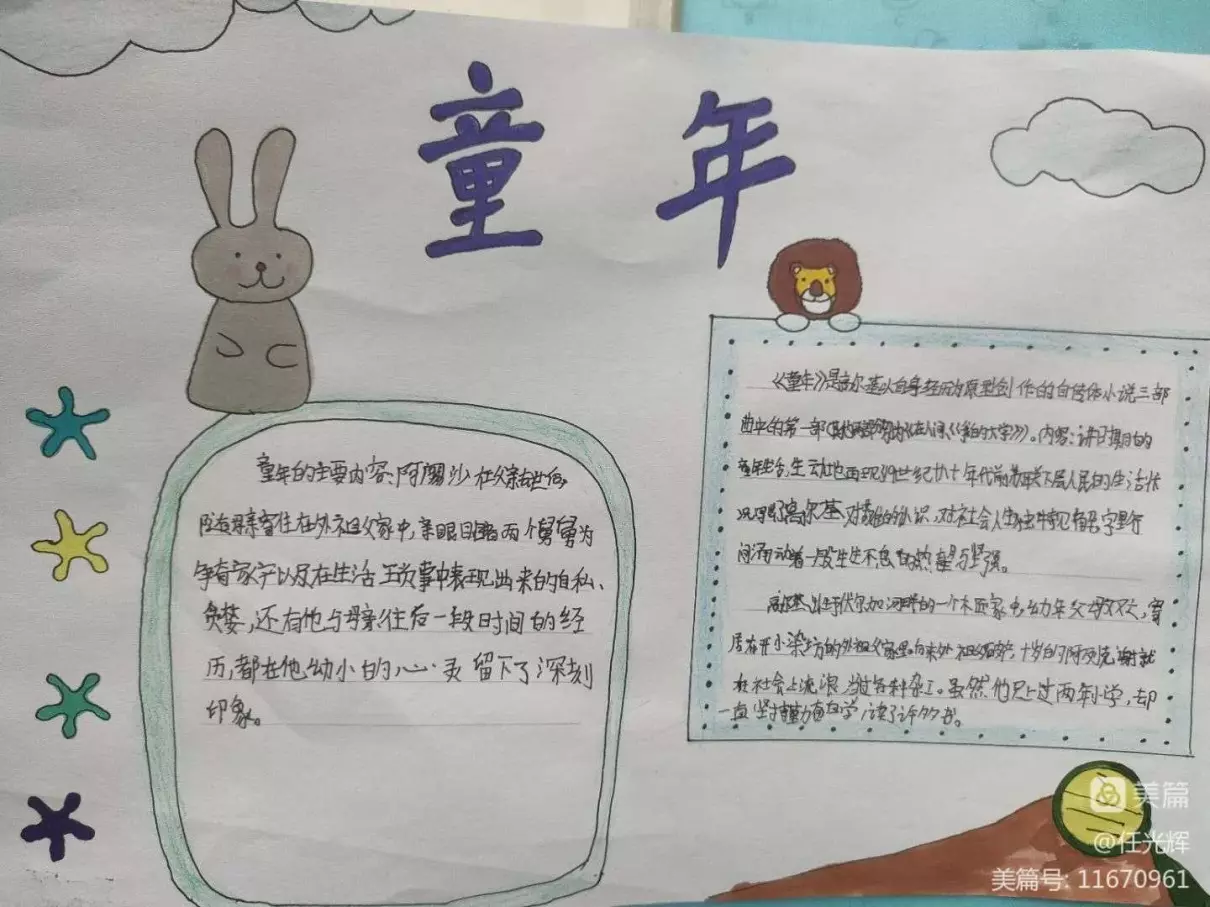 童年
童年的主要内容:阿廖沙在父亲去世后,
随母亲寄住在外祖父家中,亲眼目睹两个舅舅为
争夺家产以及在生活琐事中表现出来的自私、
贪婪,还有他与母亲往后一段时间的经
历,都在他幼小的心灵留下了深刻
印象。
《童年》是高尔基以自身经历为原型创作的自传体小说三部
曲中的第一部《在人间》《我的大学》。内容:讲
童年生活,生动地再现了19世纪七八十年代前苏联下层人民的生活状
况,高尔基对苦难的认识,对社会人生的独特见解字里行
间涌动着一股生生不息的热望与坚强。
高尔基出生在伏尔加河畔的一个木匠家中,幼年父母双亡,寄
居在开小染坊的外祖父家里。
在社会上流浪,当过各种杂工。虽然他只上过两年小学,却
一直坚持勤奋自学,读了许多书。
美篇
@任光辉
美篇号: 11670961